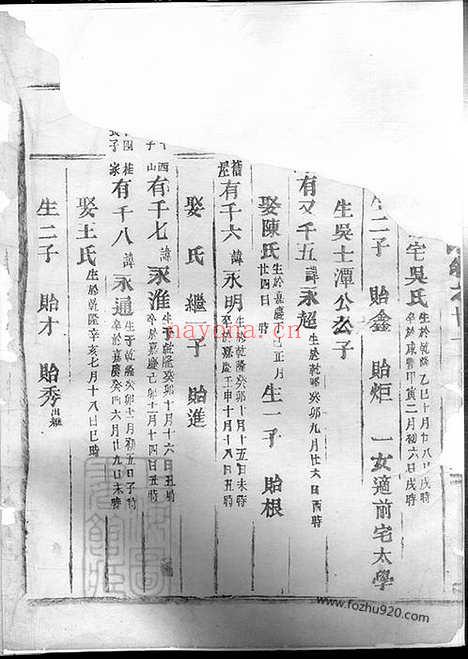 宅吳氏 生於乾隆乙巳十月廿八日戌時
卒於咸豐甲寅二月初六日戌時
生二子 貽鑫 貽炬 一女適前宅太學
生吳士潭公公子
有又千五諱永超 生於乾隆癸卯九月廿六日酉時
娶陳氏 生於嘉慶 正月
廿四日 時 生一子 貽根
有千六諱永明 生於乾隆癸卯十月十五日未時
卒於嘉慶壬申十月十八日丑時
娶 氏 繼一子 貽進
有千七諱永淮 生于乾隆癸卯十月十六日丑時
卒於嘉慶己卯十月十四日丑時
有千八諱永通 生于乾隆癸卯 月初五日子時
卒於嘉慶癸酉六月廿九日未時
娶王氏 生於乾隆辛亥七月十八日巳時
生二子 貽才 貽秀出繼
nayona.cn
www.fozhu920.com